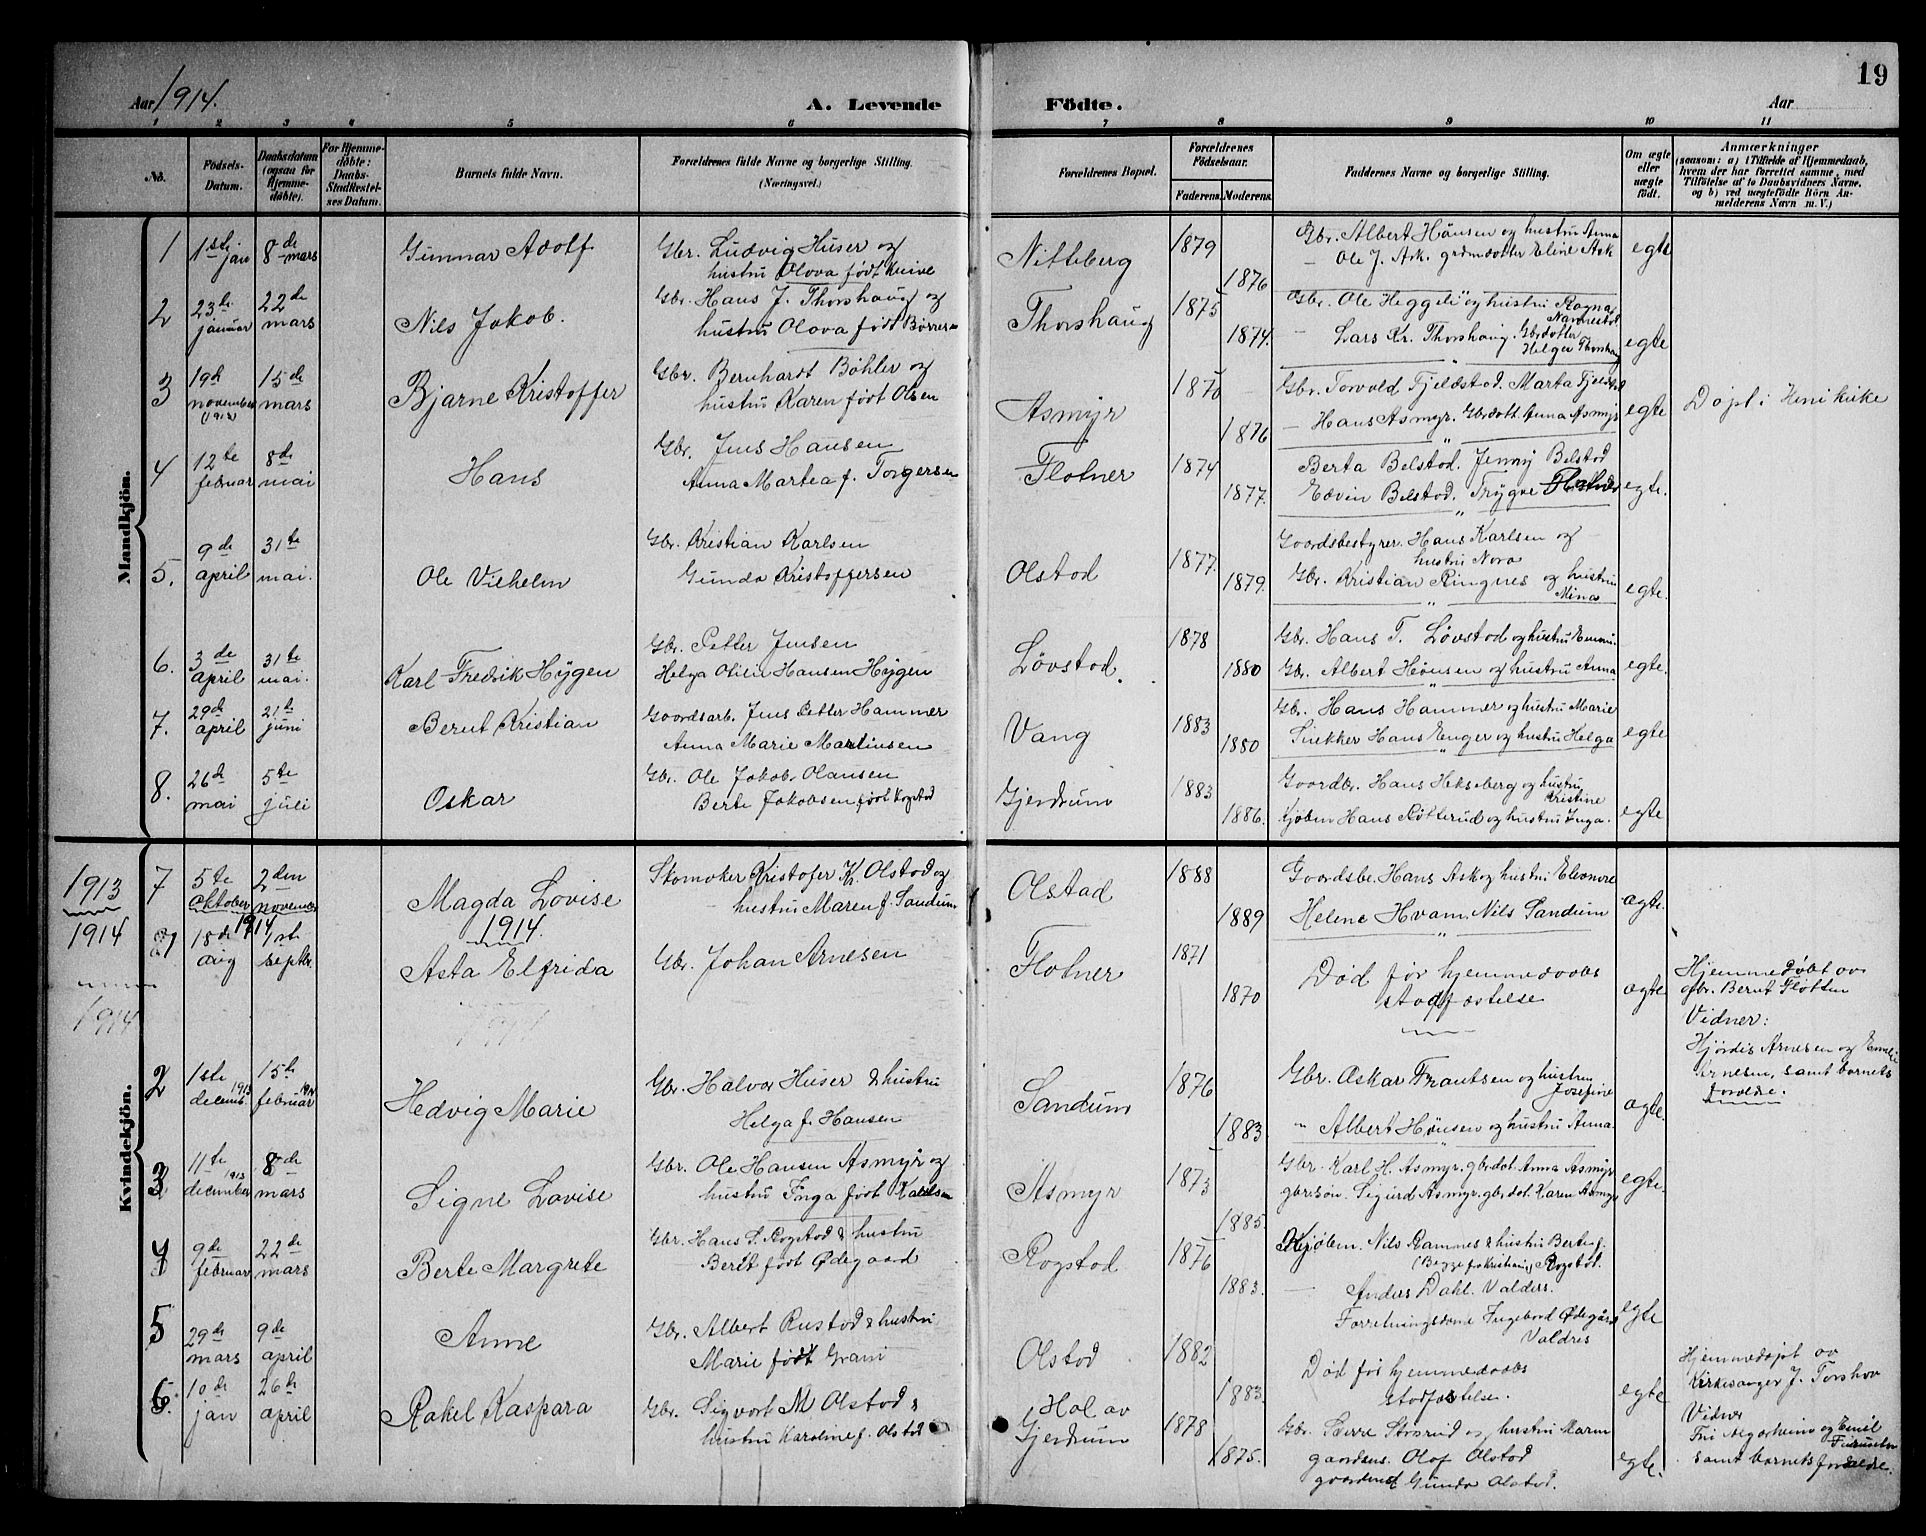 19
Aar 1914.
A. Levende Födte.
Aar
1 2 3 4 5 6 7 8 9 10 11
No.
Födsels-Datum.
Daabsdatum (ogsaa for Hjemme-døbte).
For Hjemme-døbte: Daabs-Stadfæstel-ses Datum.
Barnets fulde Navn.
Forældrenes fulde Navne og borgerlige Stilling.
(Næringsvei.)
Forældrenes Bopæl.
Forældrenes Födselsaar.
Faderens. Moderens.
Faddernes Navne og borgerlige Stilling.
Om ægte eller uægte født.
Anmærkninger
(saasom: a) i Tilfælde af Hjemmedaab,
hvem der har forrettet samme, med
Tilføielse af to Daabsvidners Navne,
og b) ved uægtefödte Börn An-
melderens Navn m. V.)
Mandkjön.
1 1ste jan 8de mars Gunnar Adolf
Gbr. Ludvig Huser og
hustru Olova født Knive
Nitteberg 1879 1876
Gbr. Albert Hønsen og hustru Anna
— Ole J. Ask. grdmdotter Eline Ask
egte
2 23de januar 22de mars Nils Jakob.
Gbr. Hans J. Thorshaug og
hustru Olova født Börresen
Thorshaug 1875 1874.
Gbr. Ole Heggeli og hustru Ragna
Navnestad
— Lars Kr. Thorshaug. Gbrdotter
Helga Thorshaug
egte
3 19d november (1913) 15de mars Bjarne Kristoffer
Gbr. Bernhardt Bøhler og
hustru Karen født Olsen
Asmyr 1870 1876
Gbr. Torvald Fjeldstad. Marta Fjeldstad
— Hans Asmyr. Gbrdott. Anna Asmyr
egte
Døpt i Heni kirke
4 12te februar 8de mai Hans
Gbr. Jens Hansen
Anna Martea f. Torgersen
Flotner 1874 1877.
Berta Belstad. Jenny Belstad
Edvin Belstad. Trygve Flotner
egte.
5. 9de april 31te mai. Ole Vilhelm
Gbr. Kristian Karlsen
Gunda Kristoffersen
Olstad 1877. 1879.
Goardsbestyrer. Hans Karlsen og
hustru Nora
Gbr. Kristian Ringnes og hustru
Mina
egte.
6. 3de april 31te mai. Karl Fredrik Hygen
Gbr. Petter Jensen
Helga Otilie Hansen Hygen
Lövstad. 1878 1880
Gbr. Hans T. Lövstad og hustru Emma.
Gbr. Albert Hønsen og hustru Anna
egte.
7. 29de april 21te juni Bernt Kristian
Goardsarb. Jens Petter Hammer
Anna Marie Martinsen
Vang 1883 1880
Gbr. Hans Hammer og hustru Marie
Snekker Hans Enger og hustru Helga
egte
8. 26de mai 5te juli Oskar
Gbr. Ole Jakob Olausen
Berte Jakobsen født Rogstad
Gjerdrum 1883 1886.
Goardbr. Hans Hekseberg og hustru
Kristine
Kjøbm Hans Røtterud og hustru Inga.
egte
Kvindekjön.
1913 7 5te oktober 2den november Magda Lovise
Skomaker Kristofer Kr. Olstad og
hustru Maren f. Sandum
Olstad 1888 1889
Goardsbr. Hans Ask og hustru Eleonore
Helene Hvam. Nils Sandum
ægte.
1914 1914 1914.
1 18de aug 1ste septbr. Asta Elfrida
Gbr. Johan Arnesen
Flotner 1871 1870
Død før hjemmedaabs
stadfæstelse
ægte
Hjemmedøbt av
gbr. Bernt Fløtten
Vidner:
Hjördis Arnesen og Emelie
Arnesen, samt barnets
foreldre.
1914
2 1ste decemb. 1913 15de februar 1914 Hedvig Marie
Gbr. Halvor Huser & hustru
Helga f. Hansen
Sandum 1876 1883
Gbr. Oskar Frantsen og hustru
Josefine
" Albert Hønsen og hustru Anna
ægte.
3 11te december 1913 8de mars Signe Lovise
Gbr. Ole Hansen Asmyr og
hustru Inga født Karlsen
Asmyr 1873 1885.
Gbr. Karl H. Asmyr. gbrdot. Anna Asmyr
gbrsøn. Sigurd Asmyr. gbrdot. Karen Asmyr
egte.
4 9de februar 22de mars Berte Margrete
Gbr. Hans S. Rogstad & hustru
Berit født Ødegaard
Rogstad 1876 1883.
Kjøbm. Nils Ramnes & hustru Berte f.
(Begge fra Kristiania) Rogstad.
— Anders Dahl. Valders.
Forretningsdame Ingebord Ødegård
Valdres
egte
5 29de mars 9de april Anne
Gbr. Albert Rustad & hustru
Marie født Grani
Olstad 1882 1883.
Død før hjemmedaabs
stadfæstelse.
egte
Hjemmedøpt av
Kirkesanger J. Torshov
Vidner
samt barnets foreldre.
6. 10de jan 26de april Rakel Kaspara
Gbr. Sigvart M Olstad &
hustru Karoline f. Olstad
Hol av
Gjerdrum 1878 1875.
Gbr. Sverre Storrud og hustru Maren
gaardens. Olaf Olstad
gaardens Gunda Olstad.
egte.